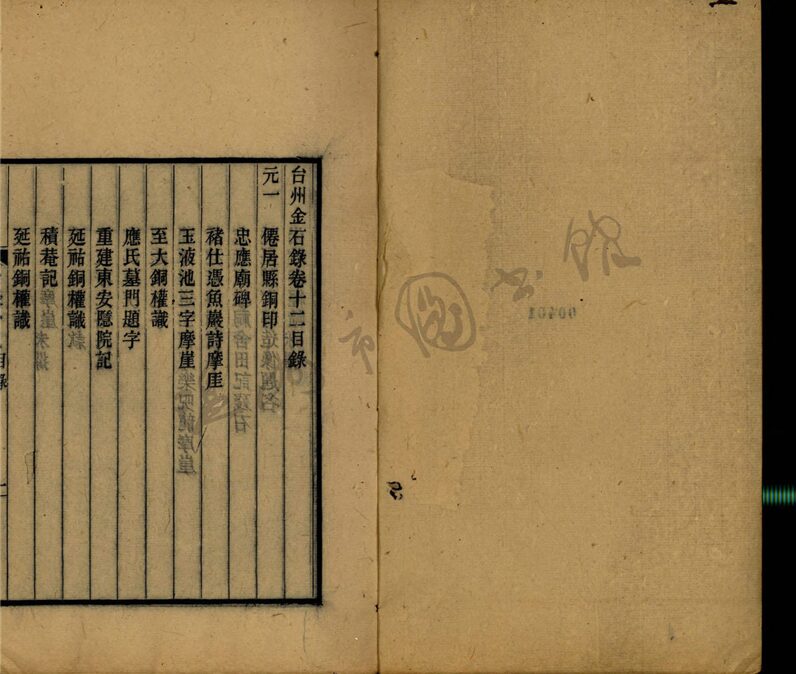 台州金石錄卷十二目錄
元一
僊居縣銅印
忠應廟碑
褚仕憑魚巖詩摩厓
玉液池三字摩崖
至大銅權識
應氏墓門題字
重建東安隱院記
延祐銅權識
積菴記
延祐銅權識
目錄
一
市圖书館
00401